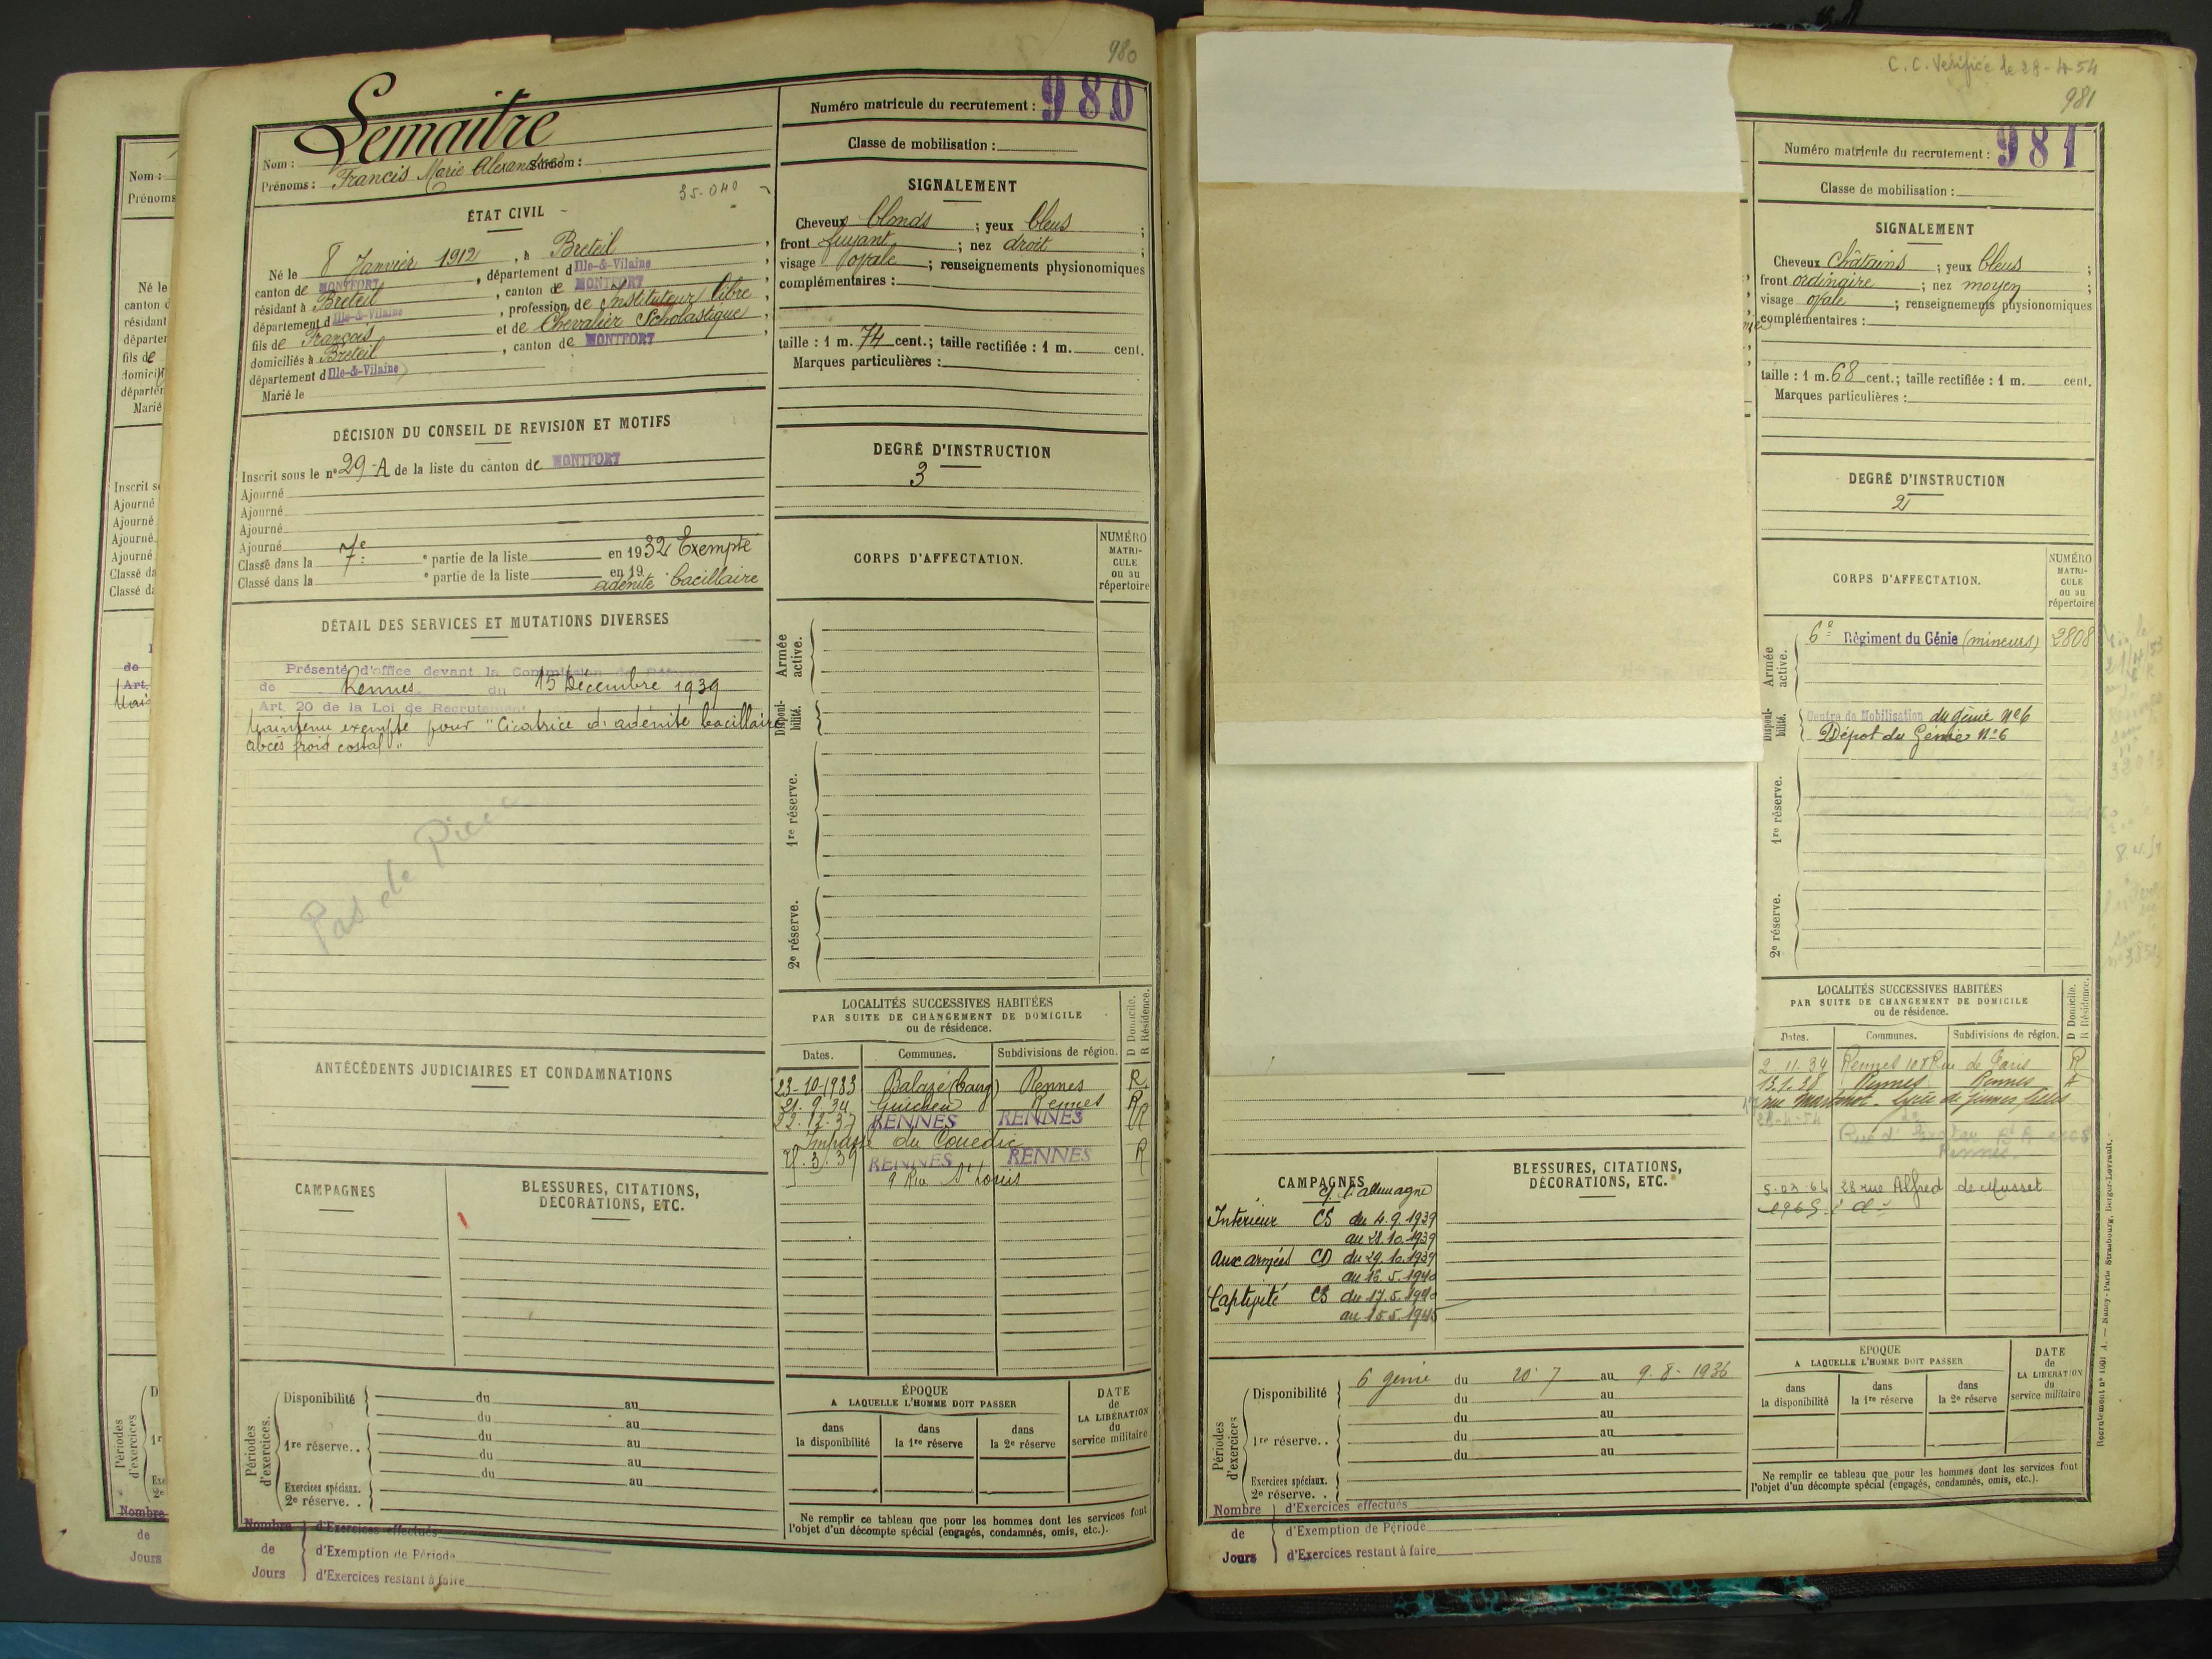 980
Lemaitre
Nom :
Surnom :
Prénoms : Francis Marie Alexandre
35-040
ÉTAT CIVIL
Né le 8 Janvier 1912, à Breteil,
canton de MONTFORT, département d Ille-&-Vilaine,
résidant à Breteil, canton de MONTFORT,
département d Ille-&-Vilaine, profession de Instituteur libre,
fils de François et de Chevalier Scholastique,
domiciliés à Breteil, canton de MONTFORT,
département d Ille-&-Vilaine
Marié le
DÉCISION DU CONSEIL DE REVISION ET MOTIFS
Inscrit sous le nº 29-A de la liste du canton de MONTFORT
Ajourné
Ajourné
Ajourné
Ajourné
Classé dans la 7e e partie de la liste en 1932 Exempté
Classé dans la e partie de la liste en 19
adénite bacillaire
DÉTAIL DES SERVICES ET MUTATIONS DIVERSES
Présenté d'office devant la Commission de
de Rennes du 15 Décembre 1939
Art. 20 de la Loi de Recrutement
Maintenu exempté pour "Cicatrice d'adénite bacillaire
abcès froid costal"
Pas de
ANTÉCÉDENTS JUDICIAIRES ET CONDAMNATIONS
CAMPAGNES
BLESSURES, CITATIONS,
DÉCORATIONS, ETC.
Périodes d'exercices.
Disponibilité du au
du au
1re réserve.. du au
du au
du au
Exercices spéciaux.
2e réserve. .
Nombre de Jours
d'Exercices effectués
d'Exemption de Période
d'Exercices restant à faire
Numéro matricule du recrutement : 980
Classe de mobilisation :
SIGNALEMENT
Cheveux blonds ; yeux bleus ;
front fuyant ; nez droit ;
visage ovale ; renseignements physionomiques
complémentaires :
taille : 1 m. 74 cent.; taille rectifiée : 1 m. cent.
Marques particulières :
DEGRÉ D'INSTRUCTION
3
CORPS D'AFFECTATION.
NUMÉRO
MATRI-
CULE
ou au
répertoire
Armée active.
Disponi-
bilité.
1re réserve.
2e réserve.
LOCALITÉS SUCCESSIVES HABITÉES
PAR SUITE DE CHANGEMENT DE DOMICILE
ou de résidence.
D Domicile.
R Résidence.
Dates. Communes. Subdivisions de région.
23-10-1933 Balazé (bourg) Rennes R
21.9.34 Guichen Rennes R
22.12.37 RENNES RENNES R
Impasse du Couedic
3.39 RENNES RENNES R
9 Rue St Louis
ÉPOQUE
A LAQUELLE L'HOMME DOIT PASSER
dans
la disponibilité
dans
la 1re réserve
dans
la 2e réserve
DATE
de
LA LIBÉRATION
du
service militaire
Ne remplir ce tableau que pour les hommes dont les services font
l'objet d'un décompte spécial (engagés, condamnés, omis, etc.).
C. C. Vérifié le 28-4-54
981
Numéro matricule du recrutement : 981
Classe de mobilisation :
SIGNALEMENT
Cheveux Châtains ; yeux bleus ;
front ordinaire ; nez moyen ;
visage ovale ; renseignements physionomiques
complémentaires :
taille : 1 m. 68 cent.; taille rectifiée : 1 m. cent.
Marques particulières :
DEGRÉ D'INSTRUCTION
2
CORPS D'AFFECTATION.
NUMÉRO
MATRI-
CULE
ou au
répertoire
Armée active.
6e Régiment du Génie (mineurs) 2808
Disponi-
bilité.
Centre de Mobilisation du génie Nº6
Dépot du Génie Nº6
1re réserve.
2e réserve.
LOCALITÉS SUCCESSIVES HABITÉES
PAR SUITE DE CHANGEMENT DE DOMICILE
ou de résidence.
D Domicile.
R Résidence.
Dates. Communes. Subdivisions de région.
2.11.34 Rennes 108 Rue de Paris R
13.1.38 Rennes Rennes
rue Martenot. Lycée de jeunes filles
28-4-54
Rennes
5-02-64 28 rue Alfred de Musset
1965
CAMPAGNES
c/ l'allemagne
Intérieur CS du 4.9.1939
au 28.10.1939
aux armées CD du 29.10.1939
au 16.5.1940
Captivité CS du 17.5.1940
au 15.5.1945
BLESSURES, CITATIONS,
DÉCORATIONS, ETC.
Périodes d'exercices
Disponibilité 6 génie du 20-7 au 9-8-1936
du au
du au
1re réserve.. du au
du au
Exercices spéciaux.
2e réserve. .
Nombre de Jours
d'Exercices effectués
d'Exemption de Période
d'Exercices restant à faire
ÉPOQUE
A LAQUELLE L'HOMME DOIT PASSER
dans
la disponibilité
dans
la 1re réserve
dans
la 2e réserve
DATE
de
LA LIBÉRATION
du
service militaire
Ne remplir ce tableau que pour les hommes dont les services font
l'objet d'un décompte spécial (engagés, condamnés, omis, etc.).
Recrutement nº 1091 A. — Nancy-Paris Strasbourg, Berger-Levrault.